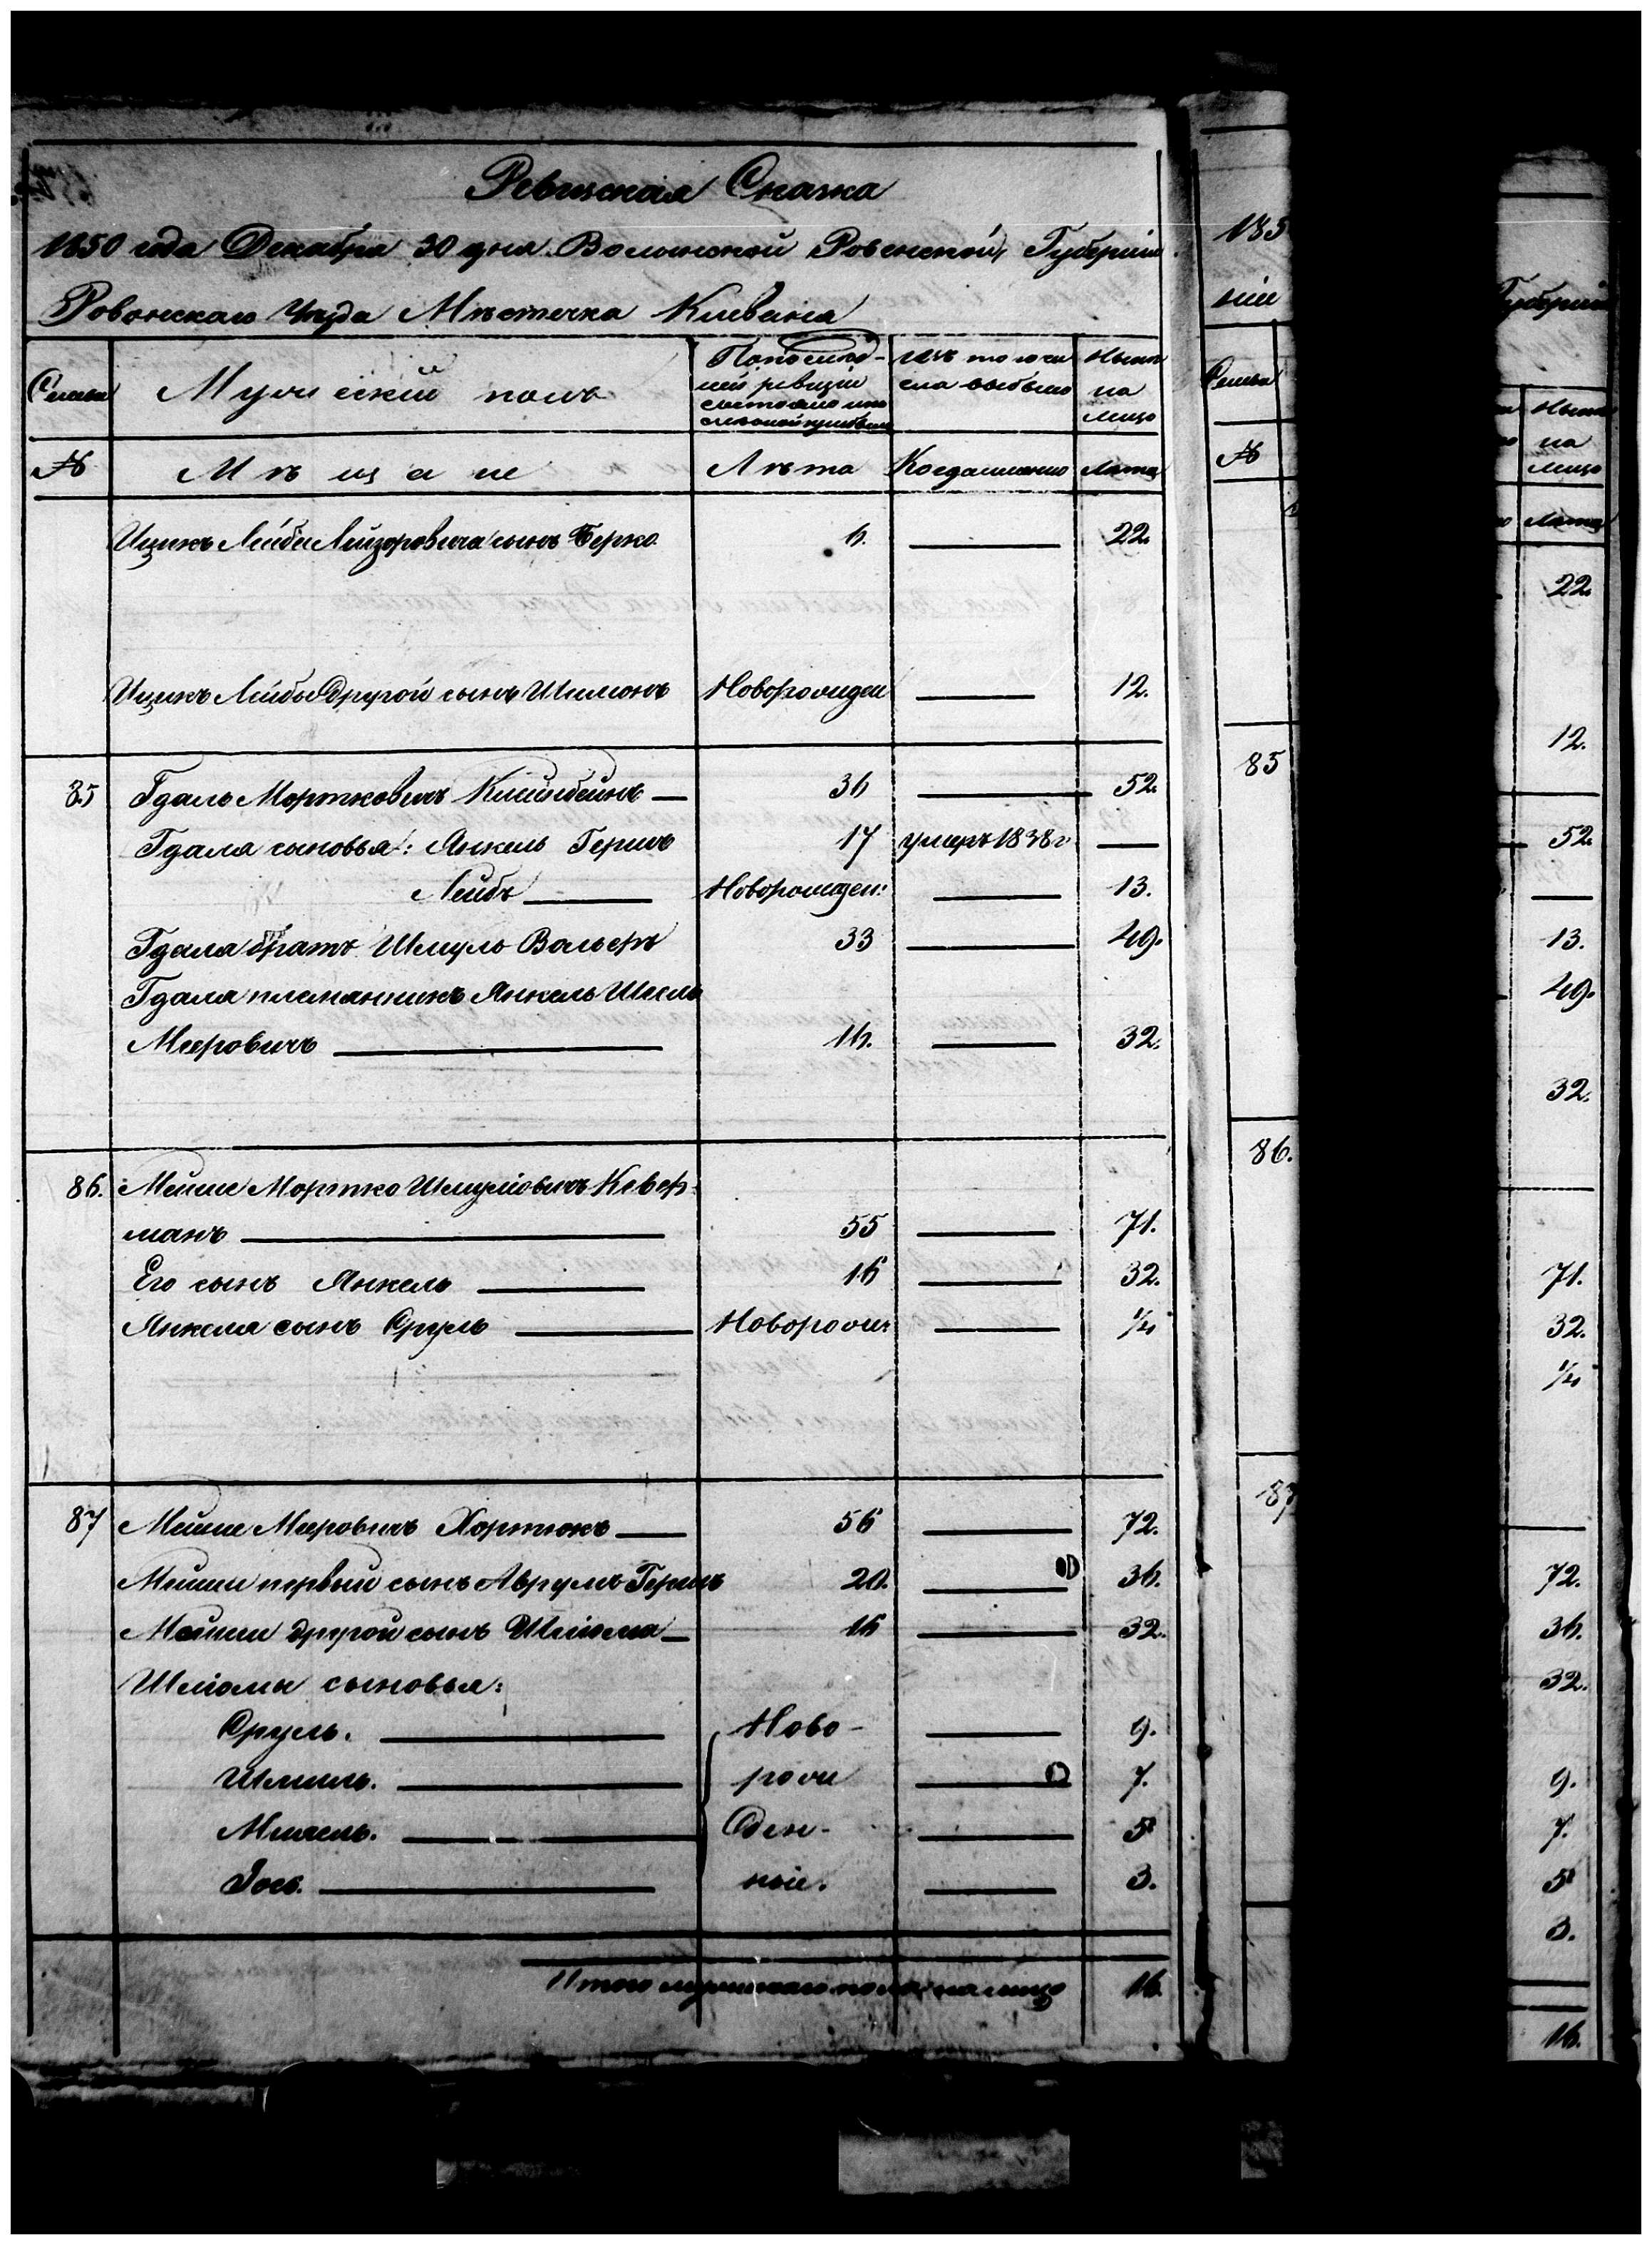 Ревизская Сказка
1850 года Декабря 30 дня Волынской Ровенской Губерніи
Ровенскаго Уезда Мѣстечка Клеваня
Семьи
Мужескій полъ
По послѣд-
ней ревизіи
состояло и по
Изъ того чи
сла выбыло
Нынѣ
на
лицо
№
Мѣщане
Лѣта
Когда именно
Лѣта
Ицикъ Лейбы Лейзеровича сынъ Берко
6.
22.
Ицикъ Лейбы другой сынъ Шимонъ
Новорожден
12.
85
Гдаль Мортковичъ Клейнбейнъ
36
52.
Гдаля сыновья: Янкель Гершъ
17
умеръ 1838 г
Лейбъ
Новорожден:
13.
Гдаля братъ Шмуль Вольфъ
33
49.
Гдаля племянникъ Янкель Шеель
Мееровичъ
16.
32.
86.
Мейше Мортко Шмуліовичъ Клвер-
манъ
55
71.
Его сынъ Янкель
16
32.
Янкеля сынъ Сруль
Новорож:
87
Мейше Мееровичъ Хортюкъ
56
72.
Мейши первый сынъ Аврумъ Гершъ
20.
36.
Мейши другой сынъ Шліома
16
32.
Шліомы сыновья:
Сруль.
Ново-
9.
Шмиль.
рож
7.
Михель.
ден-
5
Іось.
ные.
3.
Итого мужескаго пола на лицо
16.
185
ніи
Семьи
№
85
86.
87
Губерніи
Нынѣ
на
лицо
Лѣта
22.
12.
52.
13.
49.
32.
71.
32.
72.
36.
32.
9.
7.
5
3.
16.